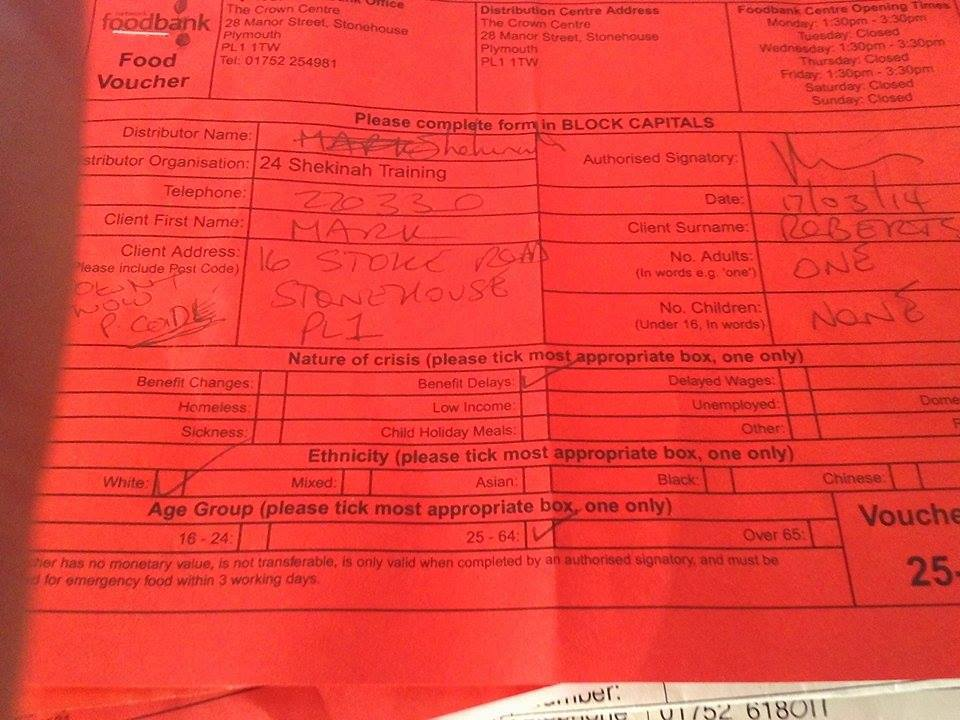 foodbank
Food
Voucher
Office
The Crown Centre
28 Manor Street, Stonehouse
Plymouth
PL1 1TW
Tel: 01752 254981
Distribution Centre Address
The Crown Centre
28 Manor Street, Stonehouse
Plymouth
PL1 1TW
Foodbank Centre Opening Times
Monday: 1:30pm - 3:30pm
Tuesday: Closed
Wednesday: 1:30pm - 3:30pm
Thursday: Closed
Friday: 1:30pm - 3:30pm
Saturday: Closed
Sunday: Closed
Please complete form in BLOCK CAPITALS
Distributor Name: MARK Shekinah
Authorised Signatory:
stributor Organisation: 24 Shekinah Training
Telephone: 220330
Date: 17/03/14
Client First Name: MARK
Client Surname: ROBERTS
Client Address: 16 STOKE ROAD
Please include Post Code) STONEHOUSE
PL1
P. CODE
No. Adults: ONE
(In words e.g. 'one')
No. Children: NONE
(Under 16, In words)
Nature of crisis (please tick most appropriate box, one only)
Benefit Changes: Benefit Delays: Delayed Wages:
Homeless: Low Income: Unemployed: Dome
Sickness: Child Holiday Meals: Other:
Ethnicity (please tick most appropriate box, one only)
White: Mixed: Asian: Black: Chinese:
Age Group (please tick most appropriate box, one only)
16 - 24: 25 - 64: Over 65:
Vouche
25-
her has no monetary value, is not transferable, is only valid when completed by an authorised signatory, and must be
d for emergency food within 3 working days.
umber:
01752 618011